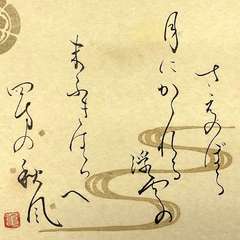 さえのぼる
月にかゝれる
浮雲の
末ふきはらへ
四方の秋風